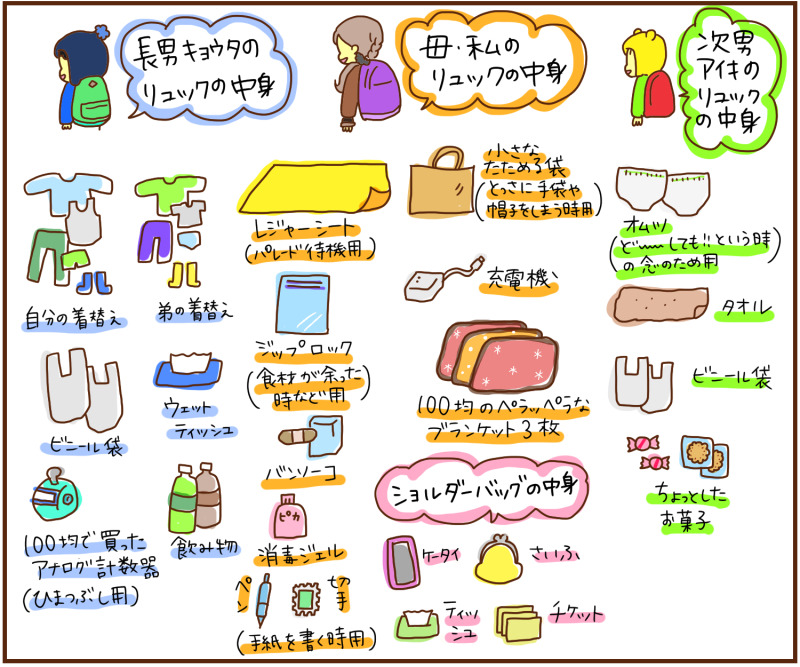 長男キョウタの
リュックの中身
母・私の
リュックの中身
次男
アイキの
リュック
の中身
自分の着替え
弟の着替え
ビニール袋
ウェット
ティッシュ
100均で買った
アナログ計数器
(ひまつぶし用)
飲み物
レジャーシート
(パレード待機用)
ジップロック
(食材が余った
時など用)
バンソーコ
ピカ
消毒ジェル
ペン
切手
(手紙を書く時用)
小さな
たためる袋
(とっさに手袋や
帽子をしまう時用)
充電機
100均のペラッペラな
ブランケット3枚
ショルダーバッグの中身
ケータイ
さいふ
ティッ
シュ
チケット
オムツ
(ど〜〜しても!!という時
の念のため用)
タオル
ビニール袋
ちょっとした
お菓子